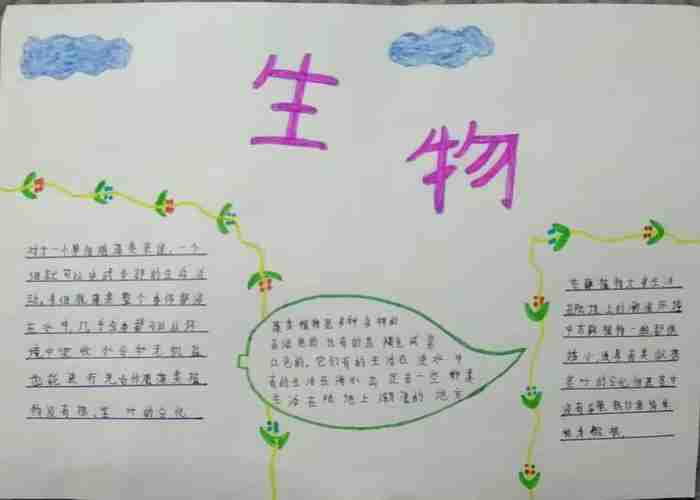 生
物
对于一个单细胞藻类来说,一个
细胞可以完成全部的生命活
动,多细胞藻类整个身体都浸
在水中,几乎全身都可以从环
境中吸收水分和无机盐
也能进行光合作用藻类植
物没有根、茎、叶的分化
藻类植物是多种多样的
有绿色的也有的是褐色或红
色的,它们有的生活在淡水中
有的生活在海水,还有一些
生活在陆地上潮湿的地方
苔藓植物大多生活
在陆地上的潮湿环境
中苔藓植物一般都很
矮小,通常具有类似茎
和叶的分化但是茎中
没有导管,